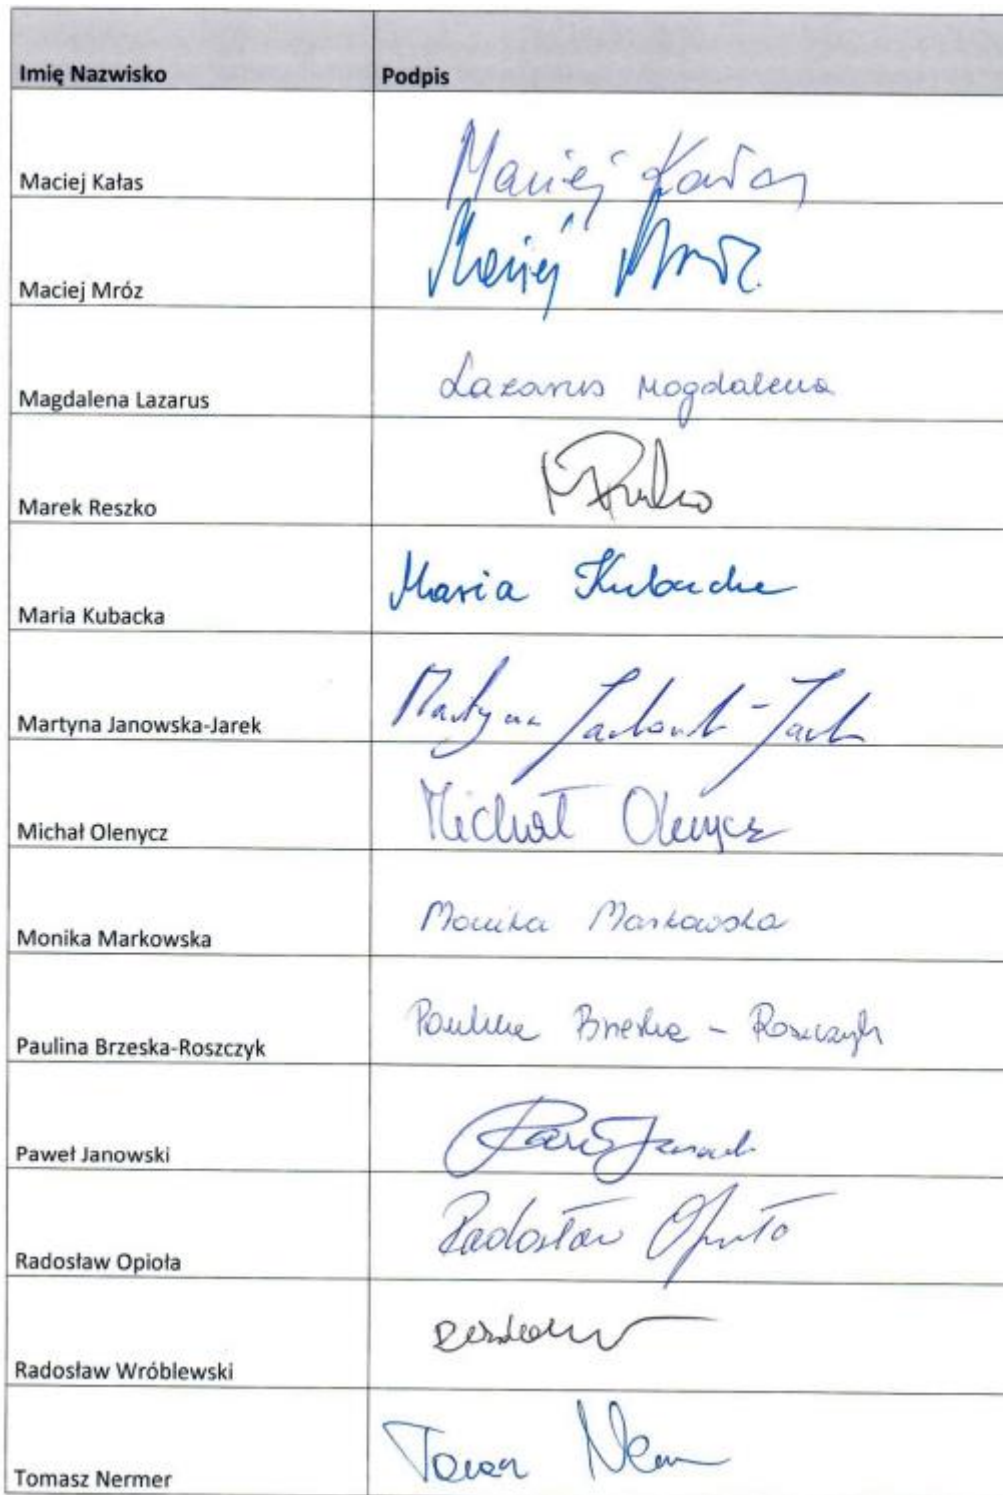 Imię Nazwisko Podpis
Maciej Kałas Maciej Kałas
Maciej Mróz Maciej Mróz
Magdalena Lazarus Lazarus Magdalena
Marek Reszko
Maria Kubacka Maria Kubacka
Martyna Janowska-Jarek Martyna
Michał Olenycz Michał Olenycz
Monika Markowska Monika Markowska
Paulina Brzeska-Roszczyk Paulina Brzeska - Roszczyk
Paweł Janowski
Radosław Opioła Radosław
Radosław Wróblewski
Tomasz Nermer